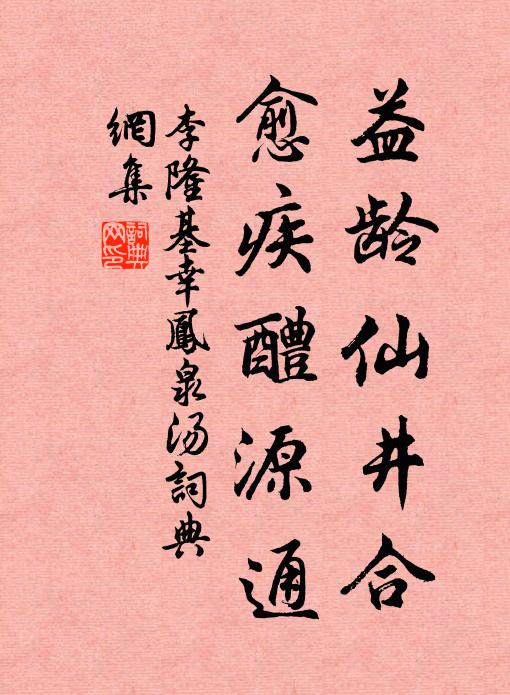 益龄仙井合
愈疾醴源通
李隆基幸鳳泉汤詞典
網集
詞典網印